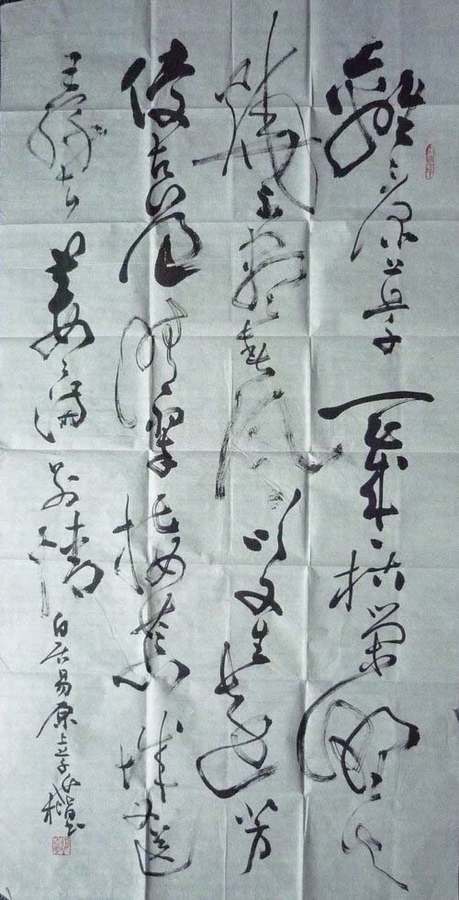 離々原上草一歲一枯榮野火
燒不盡春風吹又生遠芳
侵古道晴翠接荒城又送
王孫去萋々滿別情
白居易原上草